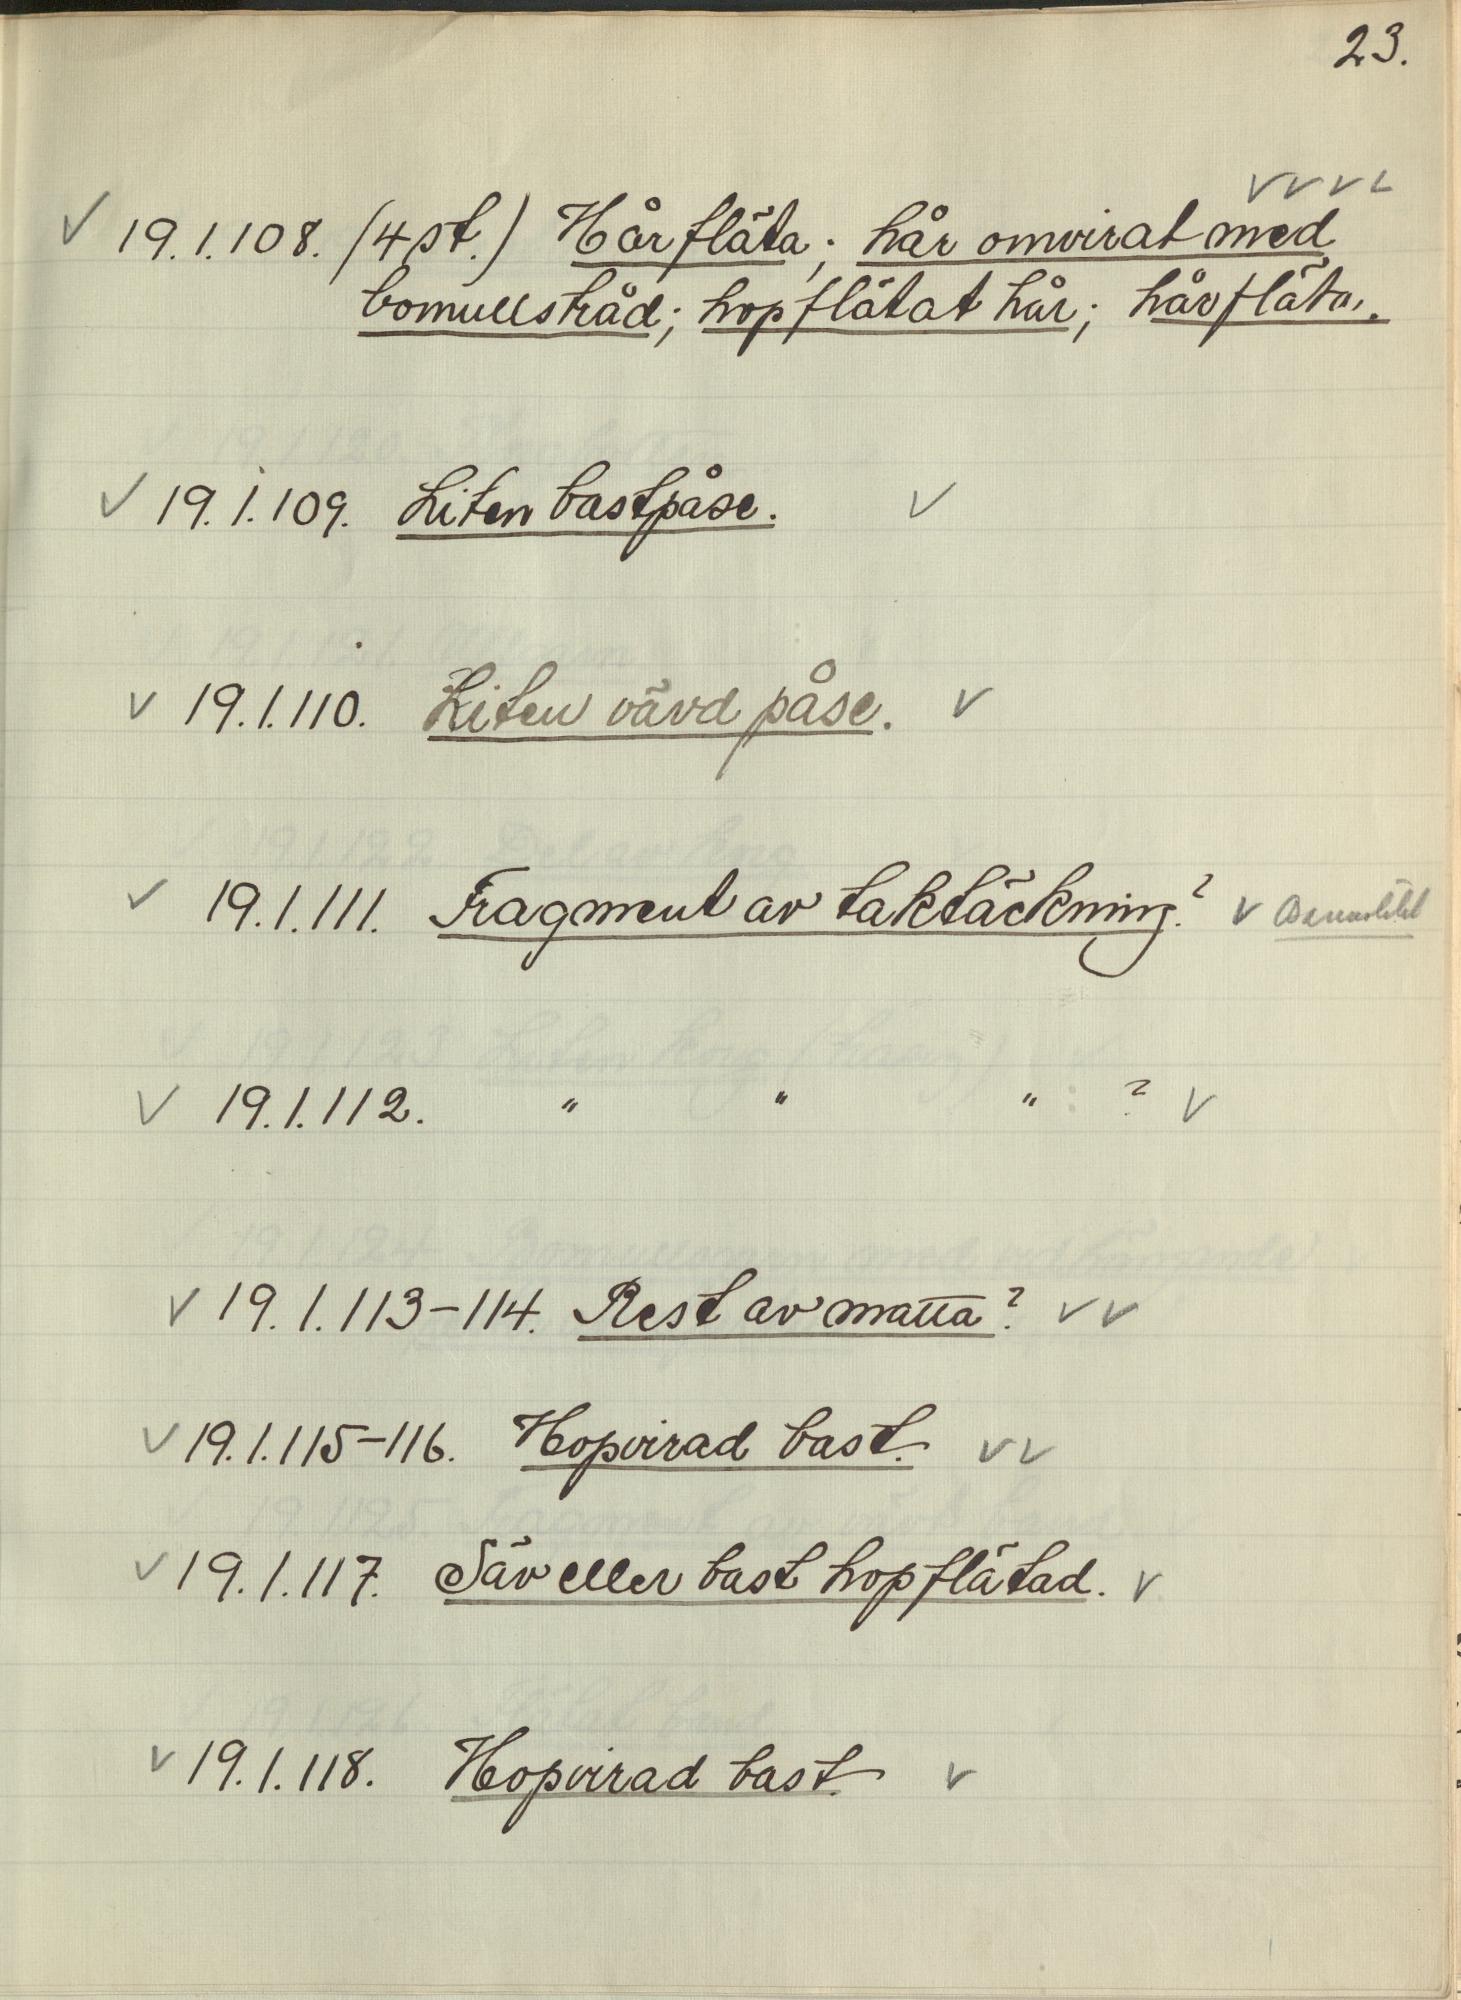 23.
✓ ✓ ✓ ✓
✓ 19.1.108. (4 st.) Hårfläta; hår omvirat med
bomullstråd; hopflätat hår; hårfläta.
✓ 19.1.109. Liten bastpåse. ✓
✓ 19.1.110. Liten vävd påse. ✓
✓ 19.1.111. Fragment av taktäckning? ✓
✓ 19.1.112. " " " ? ✓
✓ 19.1.113-114. Rest av matta? ✓ ✓
✓ 19.1.115-116. Hopvirad bast. ✓ ✓
✓ 19.1.117. Säv eller bast hopflätad. ✓
✓ 19.1.118. Hopvirad bast. ✓